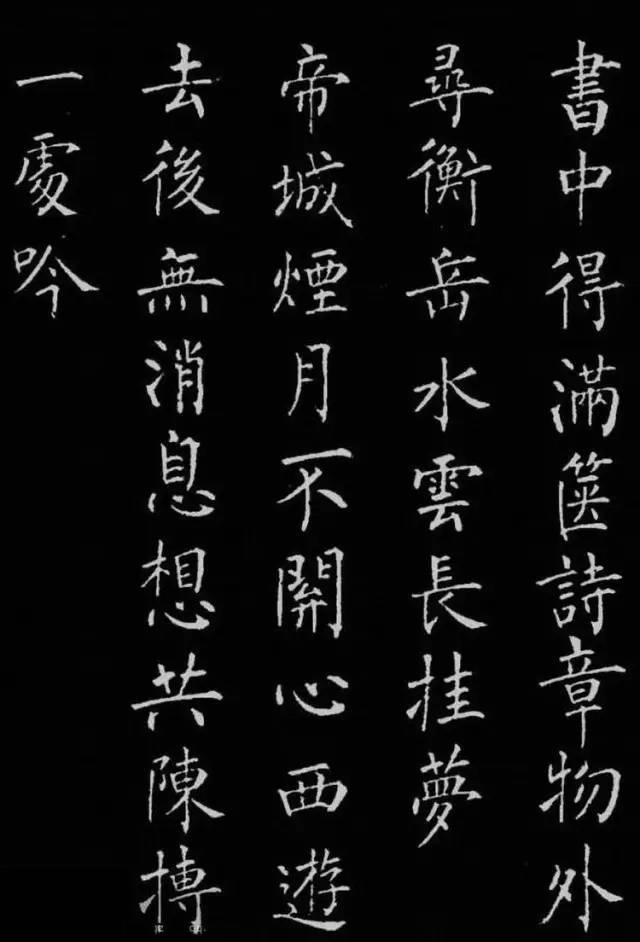 書中得滿篋詩章物外
尋衡岳水雲長挂夢
帝城煙月不關心西遊
去後無消息想共陳摶
一處吟